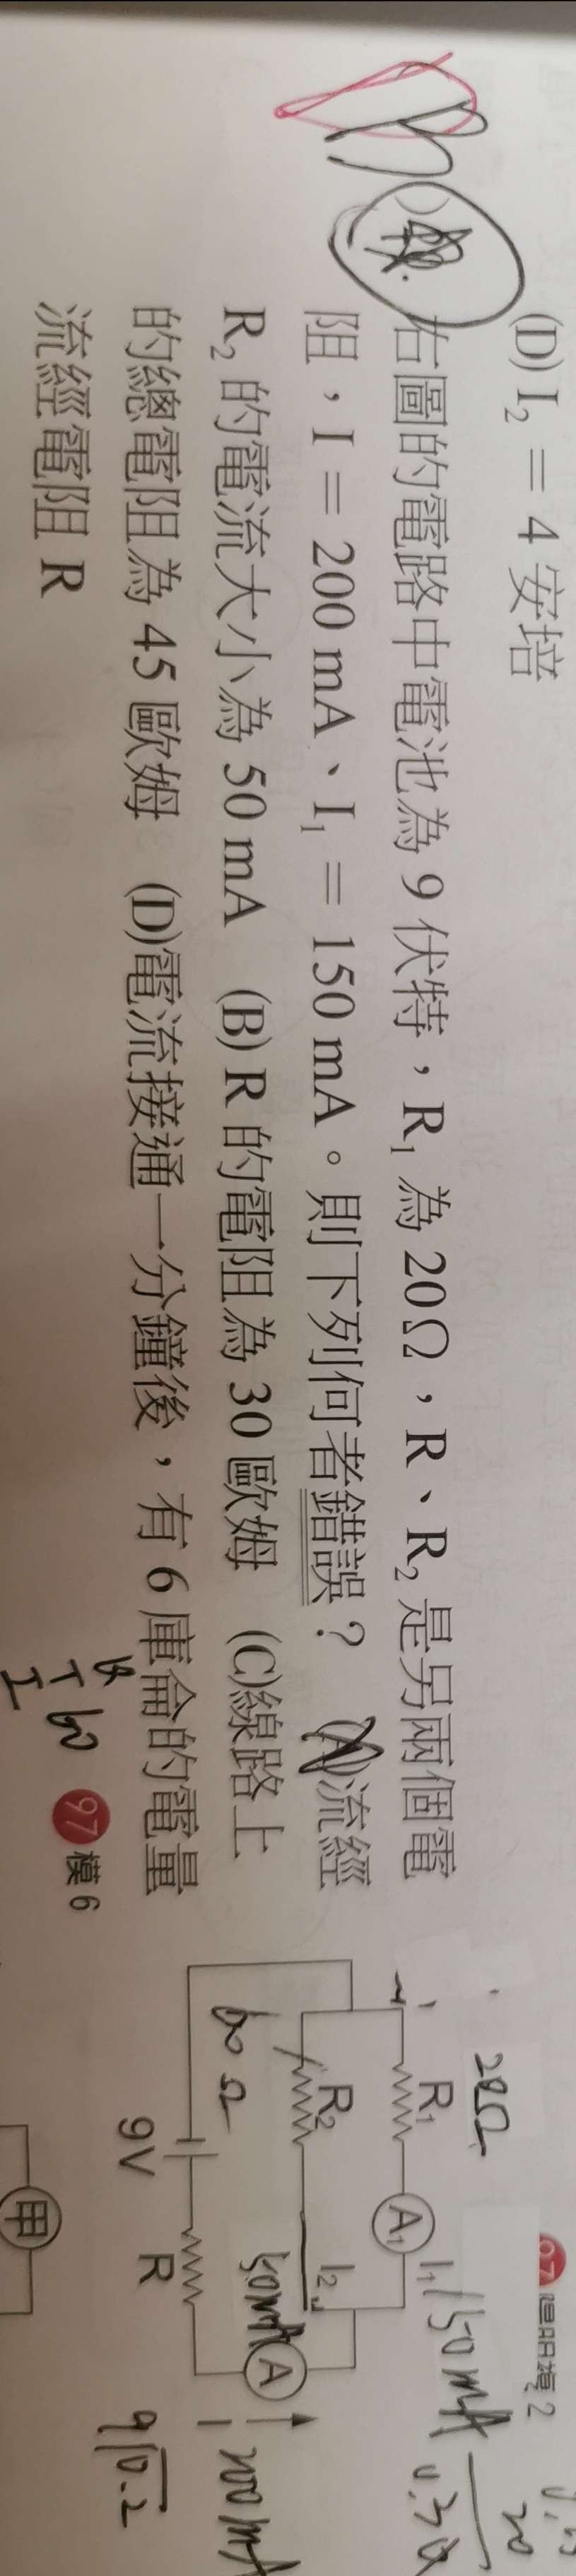 (D) I₂ = 4 安培
右圖的電路中電池為 9 伏特，R₁ 為 20Ω，R、R₂ 是另兩個電
阻，I = 200 mA、I₁ = 150 mA。則下列何者錯誤？ (A)流經
R₂ 的電流大小為 50 mA (B) R 的電阻為 30 歐姆 (C)線路上
的總電阻為 45 歐姆 (D)電流接通一分鐘後，有 6 庫侖的電量
流經電阻 R
60
97 模 6
20Ω
R₁
A₁
I₁
150 mA
R₂
I₂
50mA
60 Ω
A
200 mA
9V
R
9
0.2
20
甲